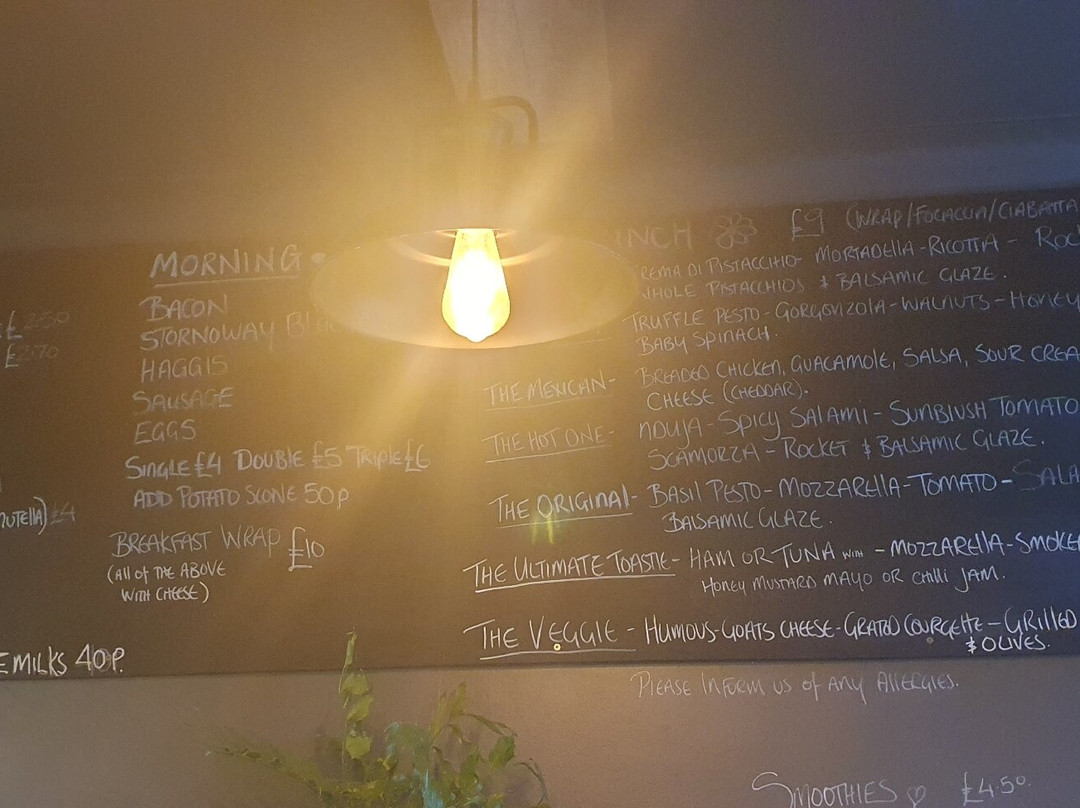 £2.50
£2.70
NUTELLA) £4
E MILKS 40P.
MORNING
BACON
STORNOWAY
HAGGIS
SAUSAGE
EGGS
SINGLE £4 DOUBLE £5 TRIPLE £6
ADD POTATO SCONE 50p
BREAKFAST WRAP £10
(All of THE ABOVE
WITH CHEESE)
£9 (WRAP/FOCACCIA/CIABATTA
REMA DI PISTACCHIO- MORTADELLA - RICOTTA -
WHOLE PISTACHIOS & BALSAMIC GLAZE.
TRUFFLE PESTO - GORGONZOLA - WALNUTS - HONEY
BABY SPINACH.
THE MEXICAN- BREADED CHICKEN, GUACAMOLE, SALSA, SOUR CREA
CHEESE (CHEDDAR).
THE HOT ONE- NDUJA - SPICY SALAMI - SUNBLUSH TOMATO
SCAMORZA - ROCKET & BALSAMIC GLAZE.
THE ORIGINAL- BASIL PESTO - MOZZARELLA - TOMATO - SALA
BALSAMIC GLAZE.
THE ULTIMATE TOASTIE - HAM OR TUNA WITH - MOZZARELLA - SMOKE
HONEY MUSTARD MAYO OR CHILLI JAM.
THE VEGGIE - HUMOUS - GOATS CHEESE - GRATED COURGETTE - GRILLED
& OLIVES.
PLEASE INFORM US of ANY ALLERGIES.
SMOOTHIES £4.50.